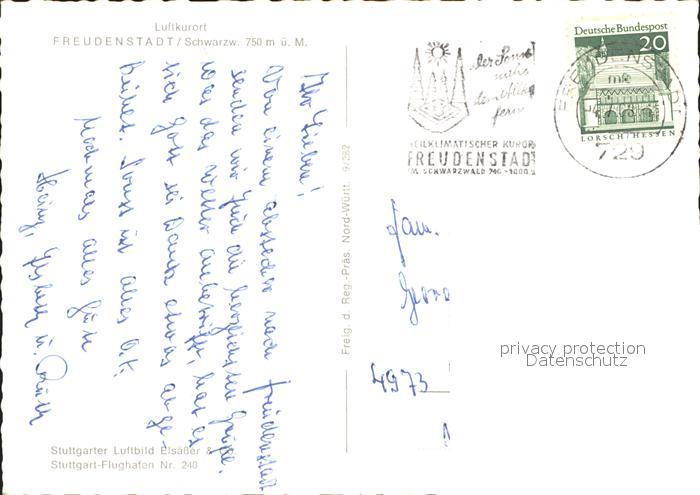 Luftkurort
FREUDENSTADT / Schwarzw. 750 m ü. M.
Ihr Lieben!
Von einem Abstecher nach Freudenstadt
senden wir Euch die herzlichsten Grüße.
was das Wetter anbetrifft, hat es
sich Gott sei Dank etwas abge-
kühlt. Sonst ist alles O.K.
Nochmals alles Gute
Heinz, u. Ruth
Stuttgarter Luftbild Elsäßer &
Stuttgart-Flughafen Nr. 240
Freig. d. Reg.-Präs. Nord-Württ. 9/282
der Sonne
nah
fern
HEILKLIMATISCHER KURORT
FREUDENSTADT
IM SCHWARZWALD 740-1000 m
Deutsche Bundespost
20
LORSCH/HESSEN
FREUDENSTADT
729
Fam.
Georg
4973
privacy protection
Datenschutz